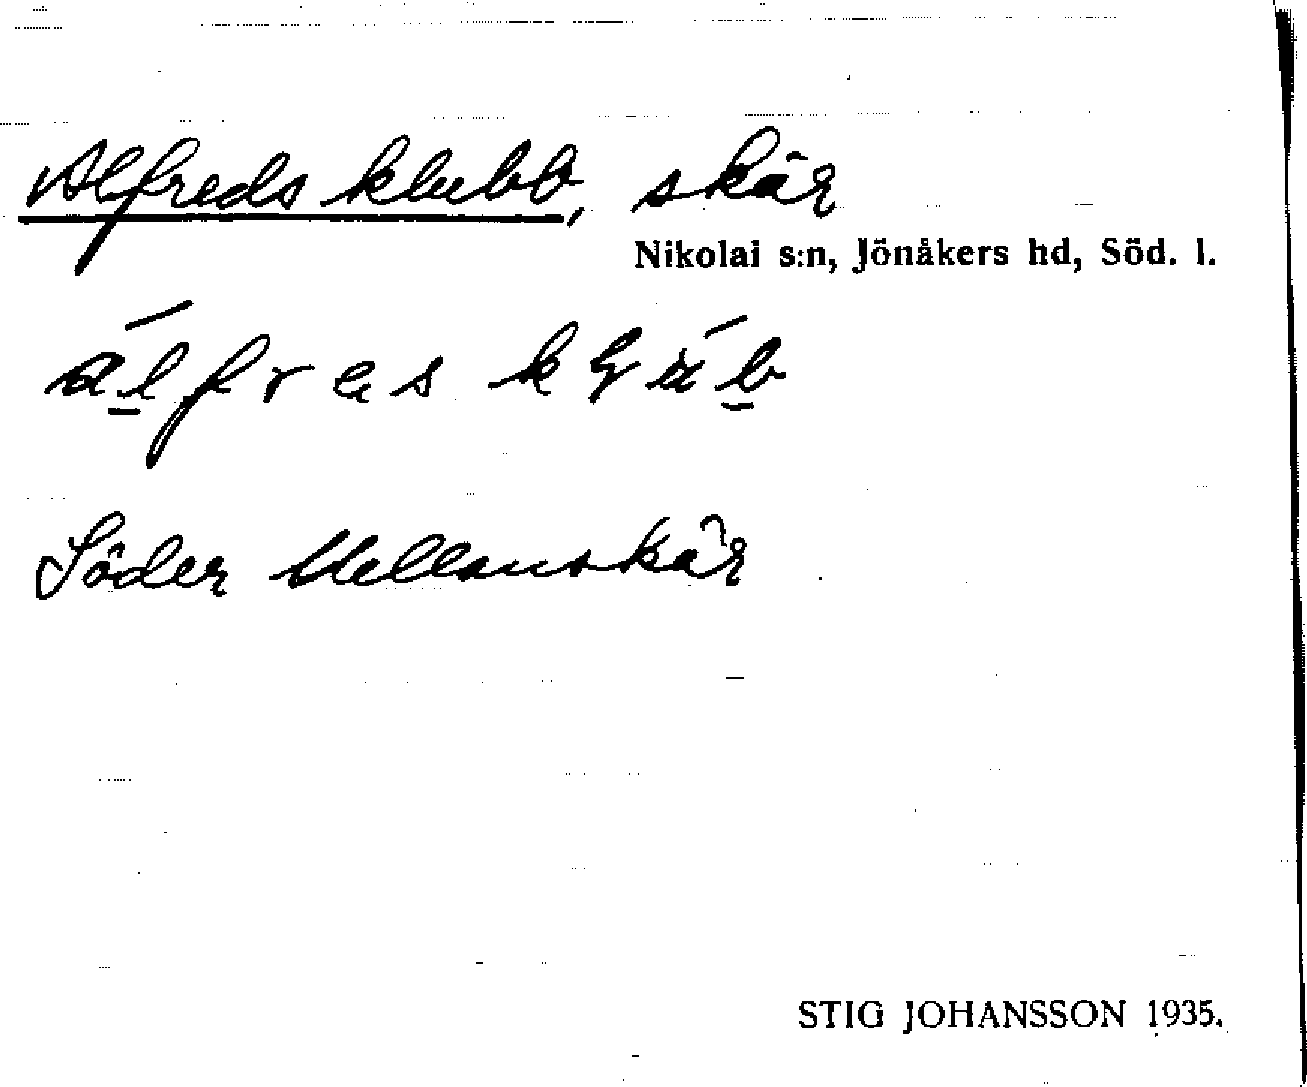 Alfreds klubb, skär
Nikolai s:n, Jönåkers hd, Söd. l.
Söder Mellanskär
STIG JOHANSSON 1935.